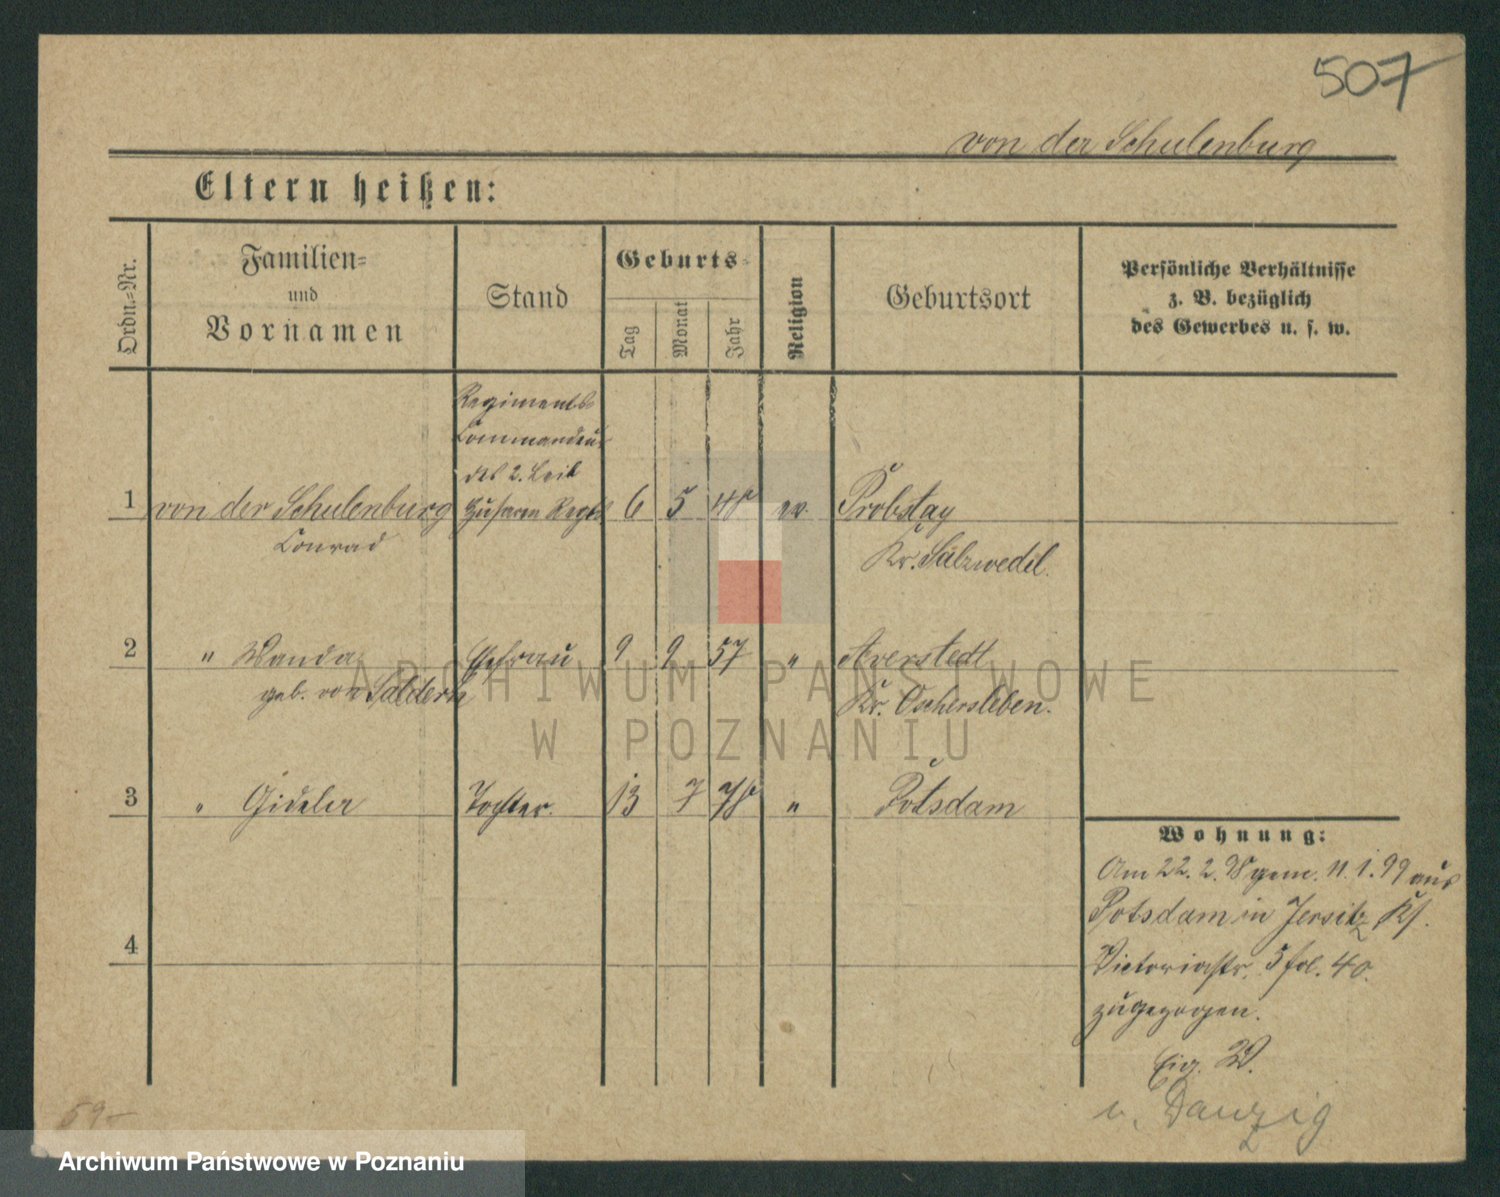 507
von der Schulenburg
Eltern heißen:
Ordn.=Nr.
Familien=
und
Vornamen
Stand
Geburts=
Tag
Monat
Jahr
Religion
Geburtsort
Persönliche Verhältnisse
z. B. bezüglich
des Gewerbes u. s. w.
Regiments
Commandeur
des 2. Leib
1 von der Schulenburg Husaren Regts 6 5 48 ev. Probstay
Conrad Kr. Salzwedel.
2 " Wanda Ehefrau 9 9 57 " Averstedt
geb. von Saldern Kr. Oschersleben.
3 " Tochter. 13 7 78 " Potsdam
4
Wohnung:
Am 22. 2. 98 gem. 11. 1. 99 aus
Potsdam in Jersitz
Victoriastr. 5 fol. 40.
zugezogen.
Eig. W.
n. Danzig
59-
ARCHIWUM PAŃSTWOWE
W POZNANIU
Archiwum Państwowe w Poznaniu